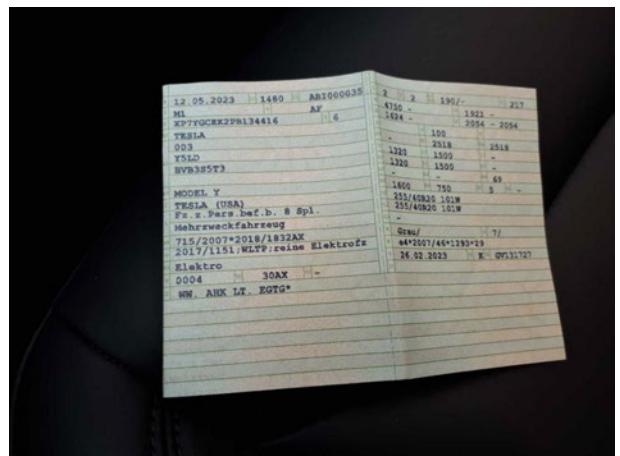 12.05.2023 1480 ABI000035
M1 AF
XP7YGCEK2PB134416 6
TESLA
003
Y5LD
BVB3S5T3
MODEL Y
TESLA (USA)
Fz.z.Pers.bef.b. 8 Spl.
Mehrzweckfahrzeug
715/2007*2018/1832AX
2017/1151;WLTP;reine Elektrofz
Elektro
0004 30AX -
WW. AHK LT. EGTG*
2 2 190/- 217
4750 - 1921 -
1624 - 2054 - 2054
- 100
- 2518 2518
1320 1500 -
1320 1500 -
- - 69
1600 750 5 -
255/40R20 101W
255/40R20 101W
-
Grau/ 7/
e4*2007/46*1293*29
26.02.2023 K GV131727